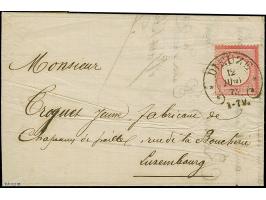 Monsieur
Croques Jeune, fabricant de
Chapeaux de paille, rue de la Boucherie
Luxembourg
DIEUZE
12
72